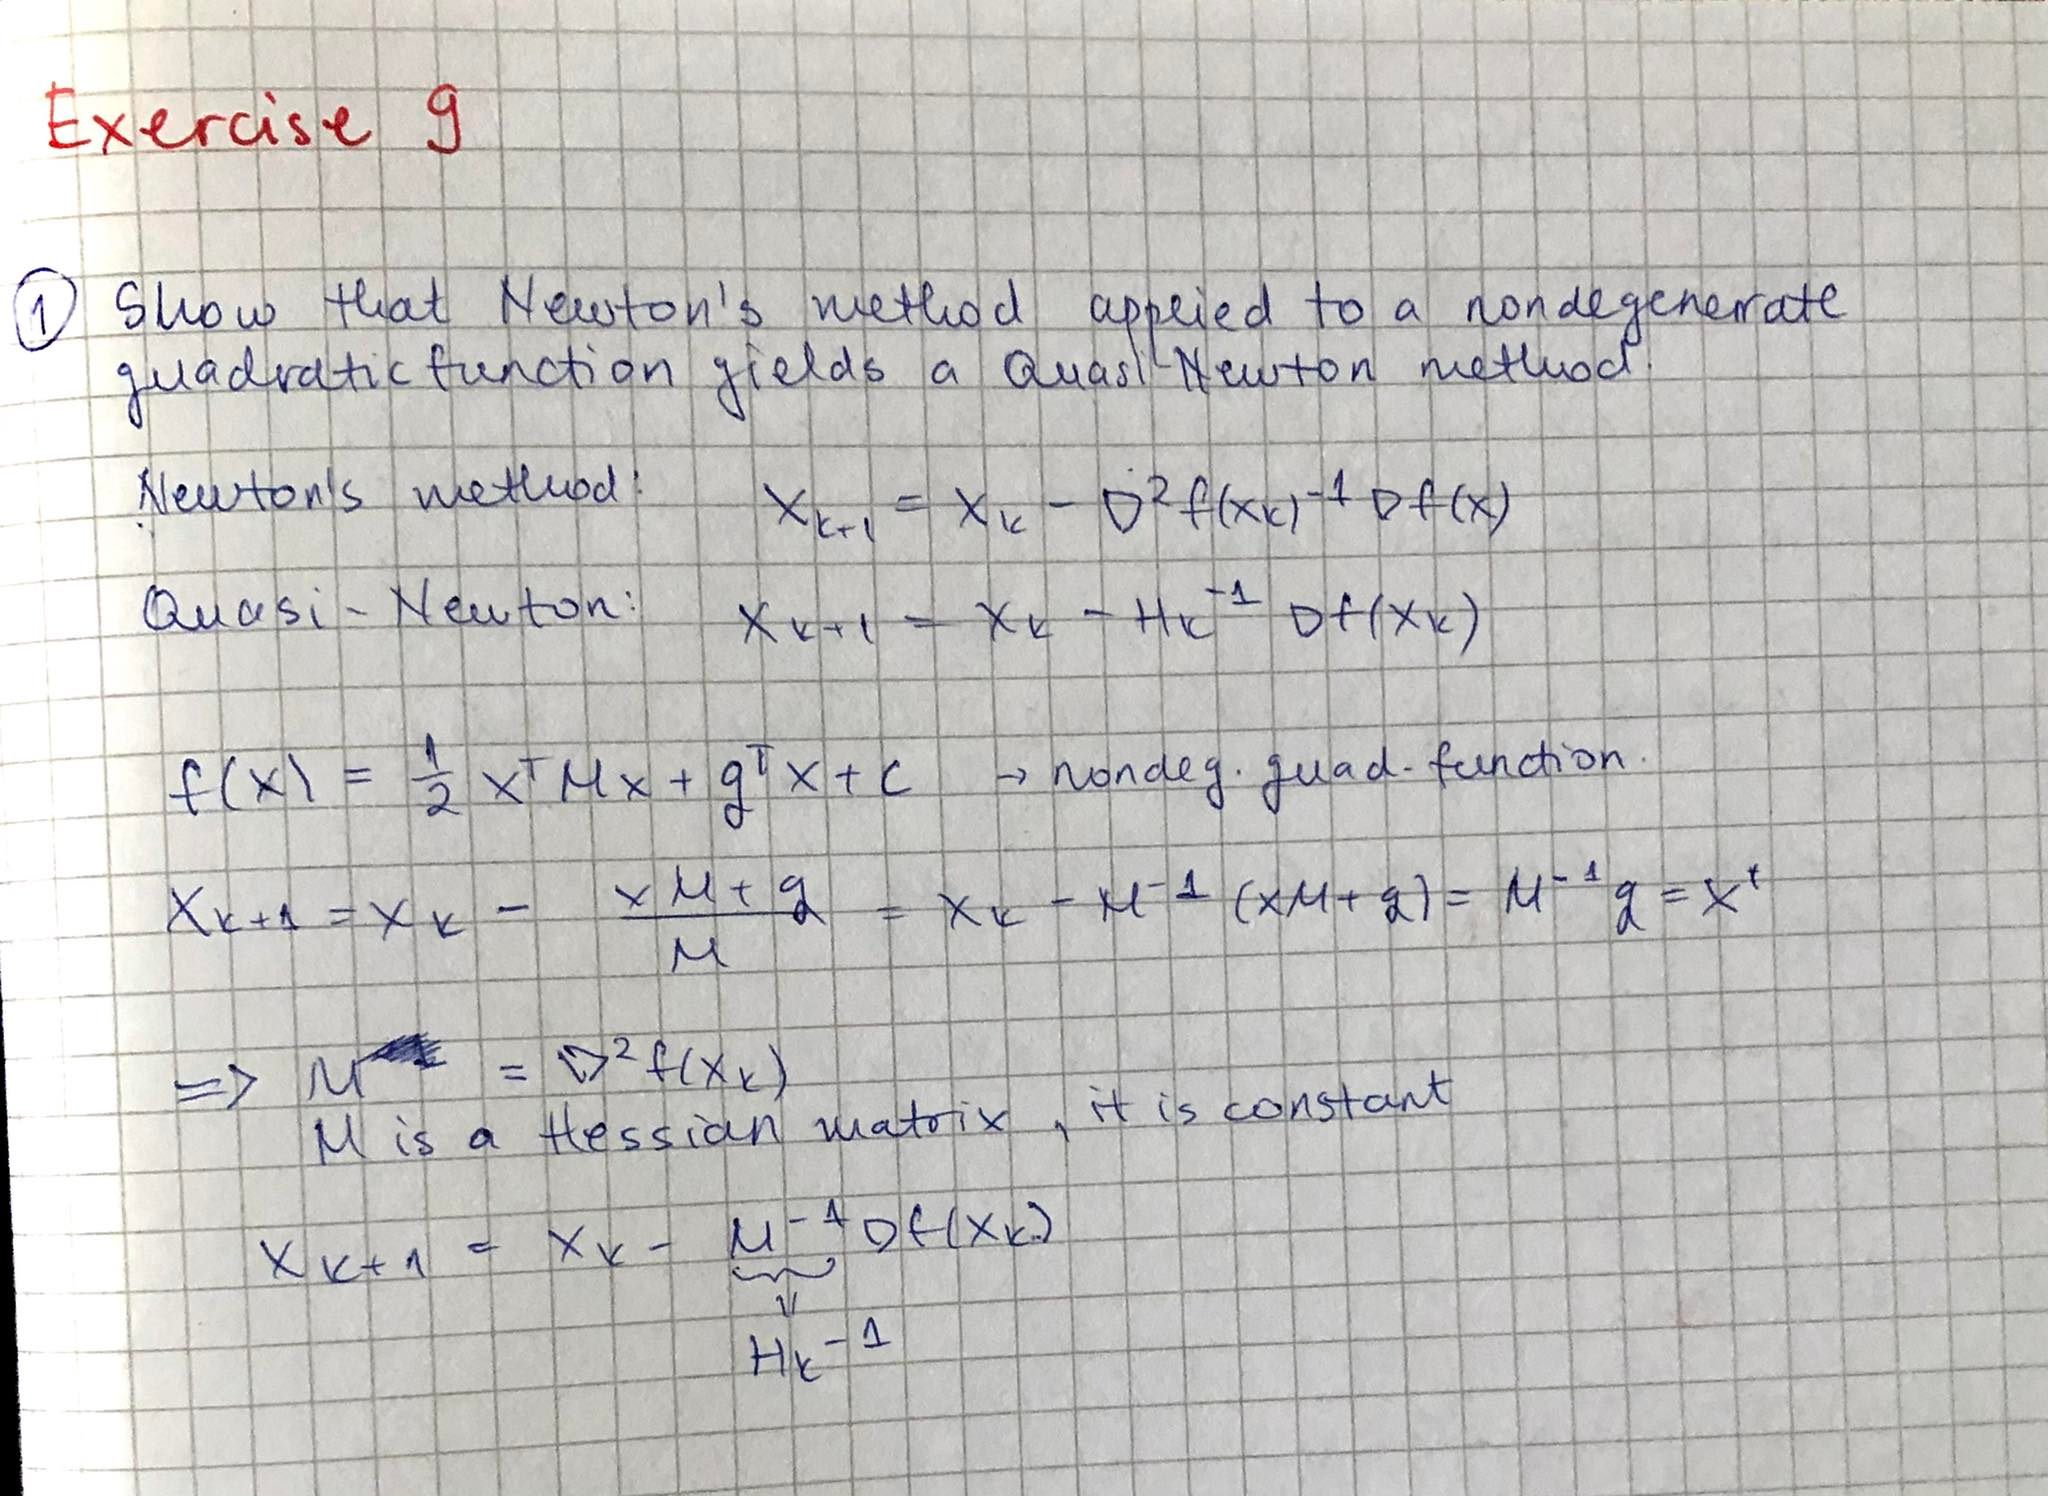 Exercise 9
① Show that Newton's method applied to a nondegenerrate
quadratic function yields a Quasi-Newton method.
Newton's method: x_{k+1} = x_k - ∇²f(x_k)^{-1} ∇f(x)
Quasi-Newton: x_{k+1} = x_k - H_k^{-1} ∇f(x_k)
f(x) = 1/2 x^T M x + g^T x + c → nondeg. quad. function.
x_{k+1} = x_k - (xM + g)/M = x_k - M^{-1} (xM + g) = M^{-1} g = x*
=> M = ∇²f(x_k)
M is a Hessian matrix, it is constant
x_{k+1} = x_k - M^{-1} ∇f(x_k)
H_k^{-1}